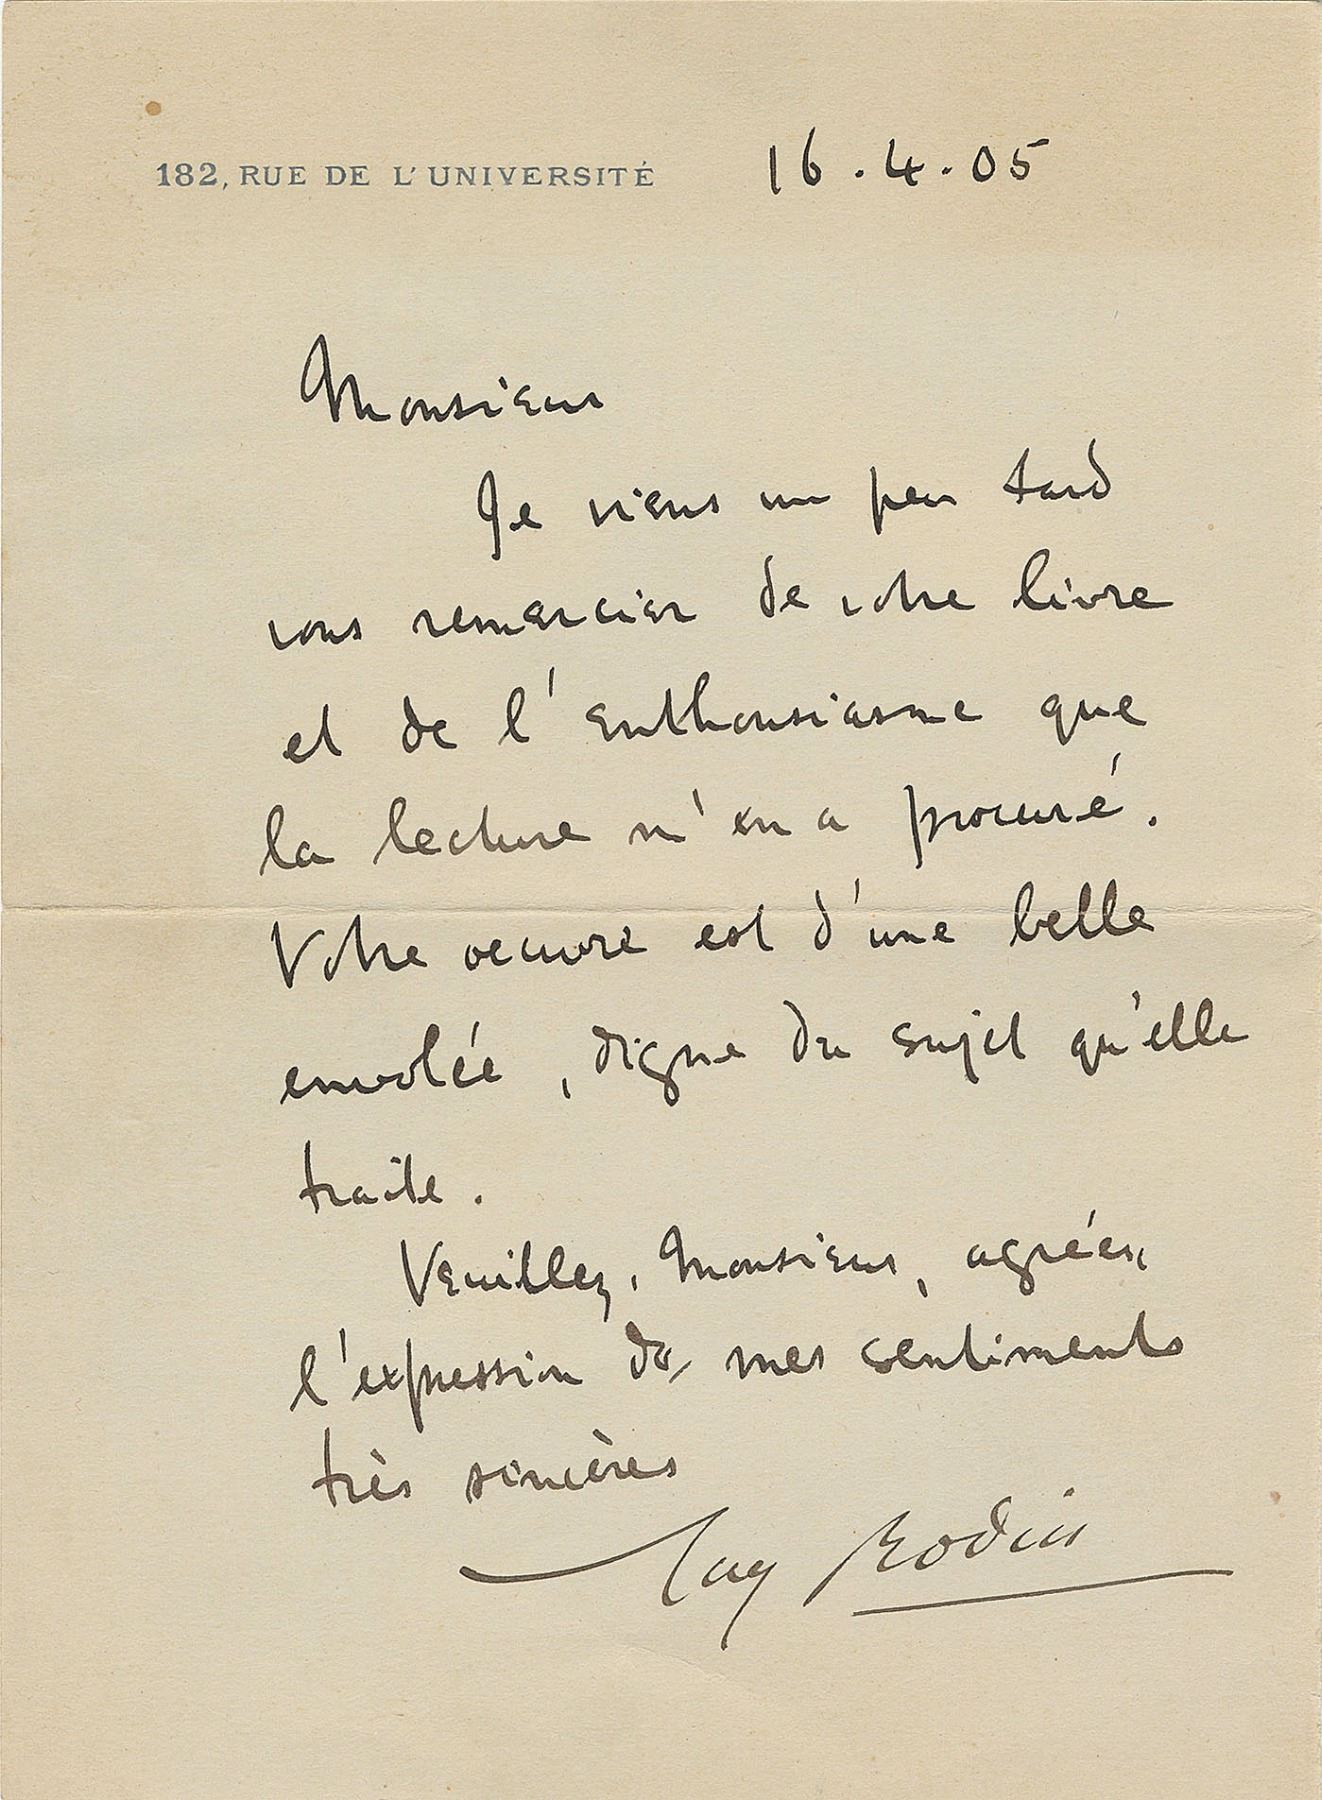 182, RUE DE L'UNIVERSITÉ 16.4.05
Monsieur
Je viens un peu tard
vous remercier de votre livre
et de l'enthousiasme que
la lecture m'en a procuré.
Votre oeuvre est d'une belle
envolée, digne du sujet qu'elle
traite.
Veuillez, Monsieur, agréer,
l'expression de mes sentiments
très sincères
Aug Rodin